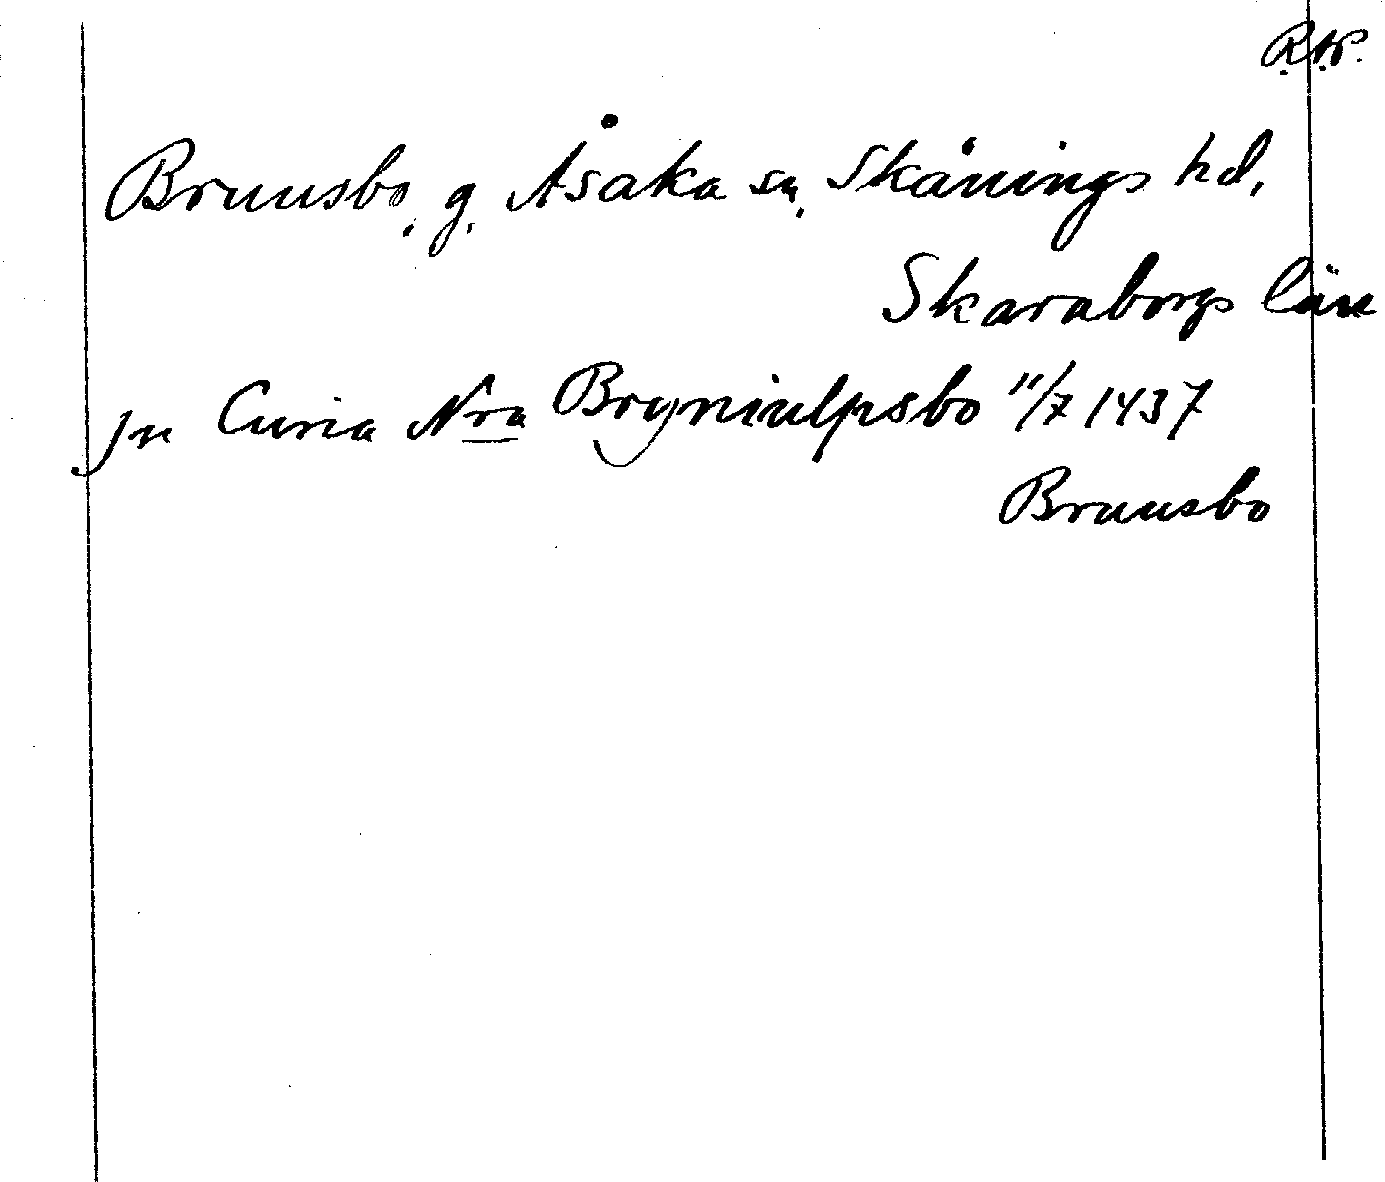 R.AP.
Brunsbo, g. Åsaka sn, Skånings hd,
Skaraborgs län
jn Curia Nra Bryniulpsbo 11/7 1437
Brunsbo